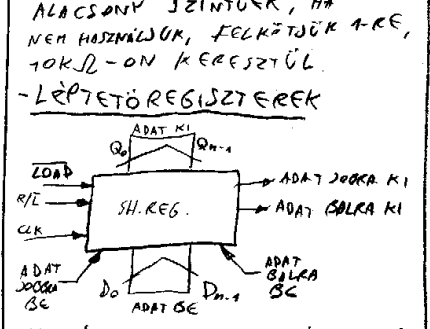 ALACSONY SZINTŰEK, HA
NEM HASZNÁLJUK, FELKÖTJÜK 1-RE,
10KΩ-ON KERESZTÜL
-LÉPTETŐREGISZTEREK
ADAT KI
Q0 Qn-1
LOAD
R/L
CLK
SH.REG.
ADAT JOBBRA KI
ADAT BALRA KI
ADAT
JOBBRA
BE
D0 Dn-1
ADAT BE
ADAT
BALRA
BE